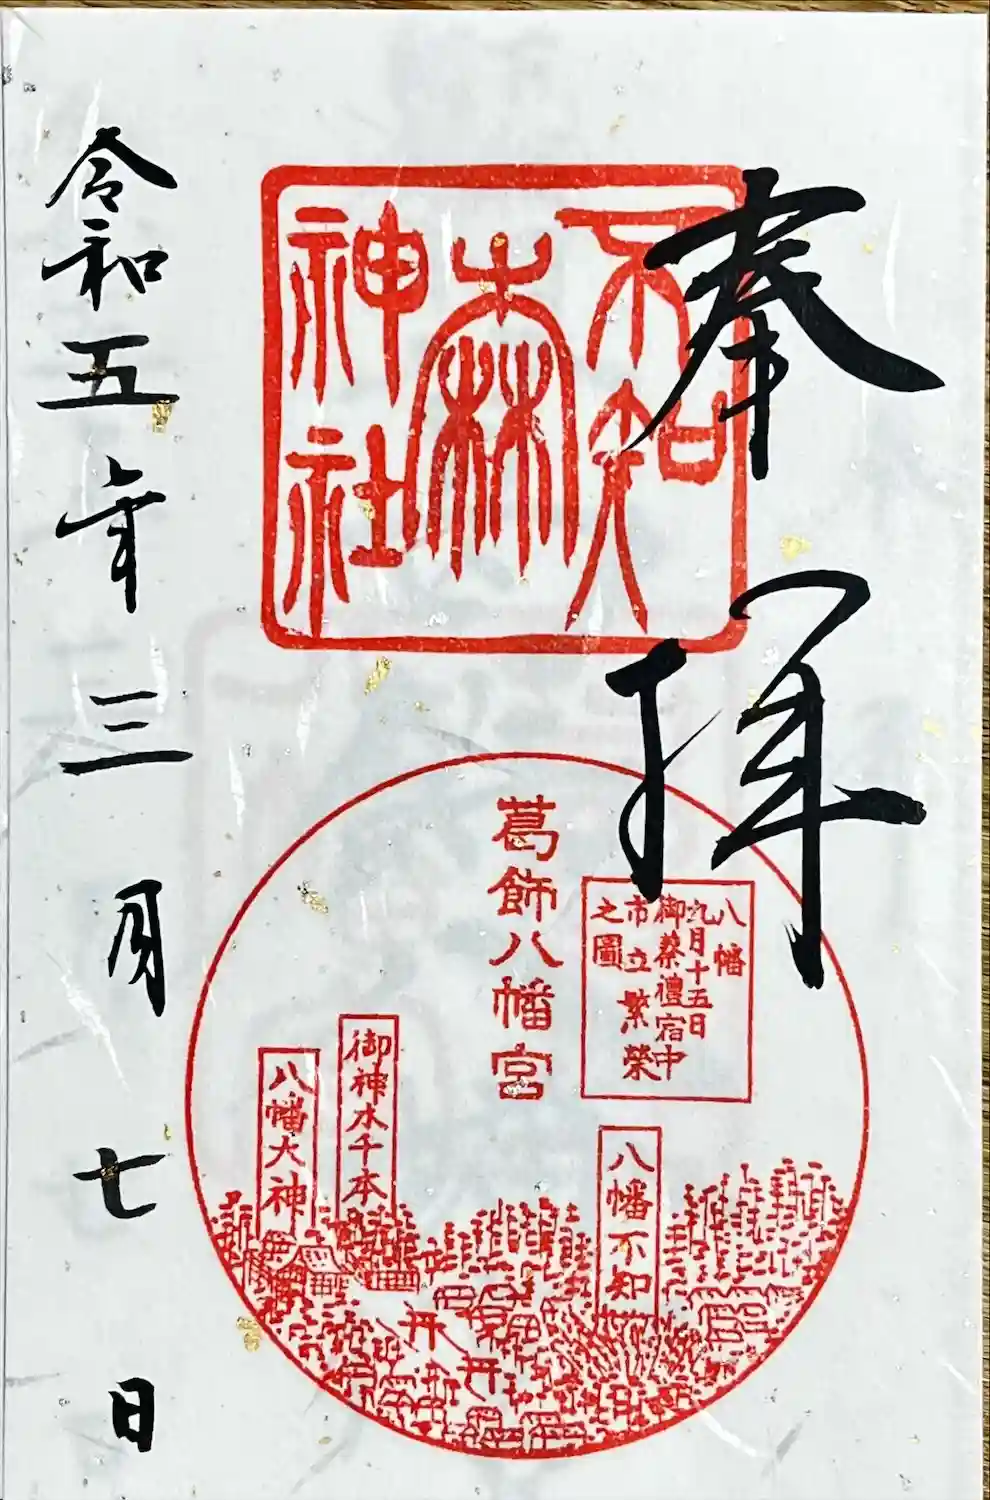 奉拝
不知
森
神社
葛飾八幡宮
八幡
九月十五日
御祭禮宿中
市立繁榮
之圖
八幡不知
御神水千本
八幡大神
令和五年三月七日